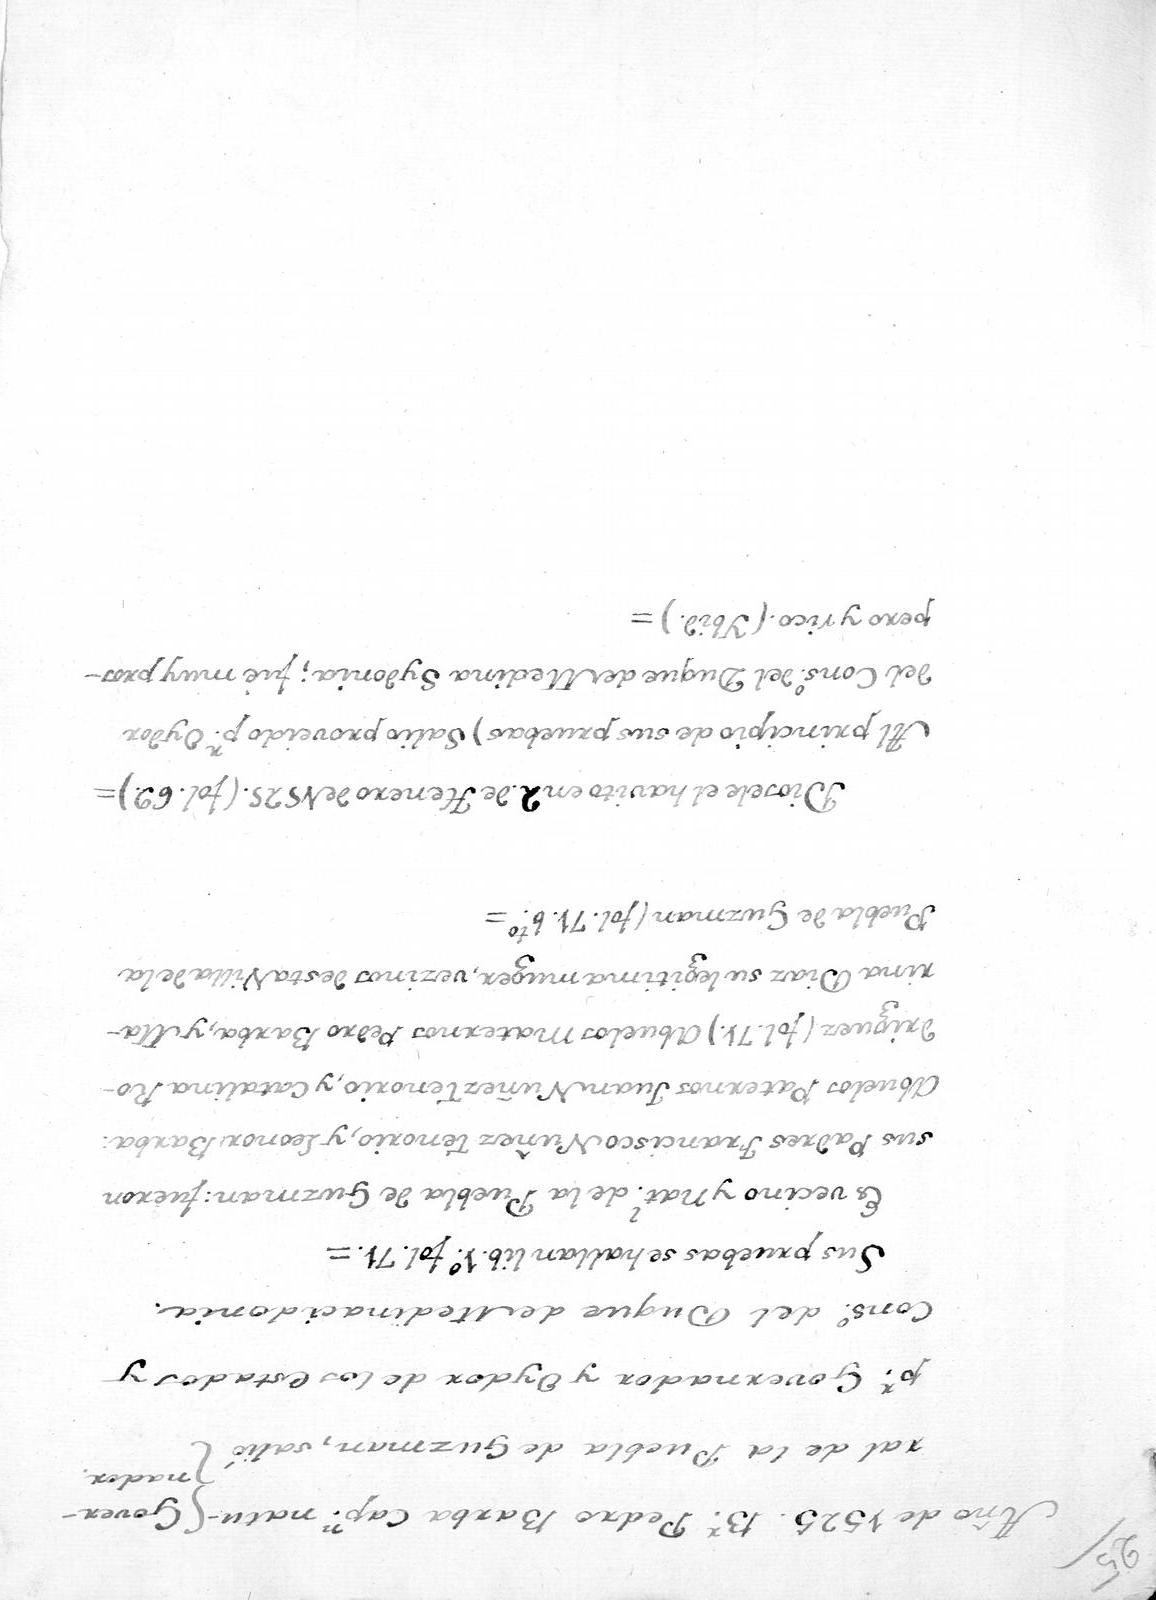 25/
Año de 1525. B.r Pedro Barba Cap.n natu-{Gover-
nador.
ral de la Puebla de Guzman, salió
p.r Governador y Oydor de los estados y
Cons.o del Duque de Medinacidonia.
Sus pruebas se hallan lib. 1.o fol. 71. =
Es vecino y Nat.l de la Puebla de Guzman: fueron
sus Padres Francisco Nuñez Tenorio, y Leonor Barba:
Abuelos Paternos Juan Nuñez Tenorio, y Catalina Ro-
driguez (fol. 71.) Abuelos Maternos Pedro Barba, y Ma-
rina Diaz su legitima muger, vezinos desta Villa de la
Puebla de Guzman (fol. 71. b.to =
Diosele el havito en 2. de Henero de 1525. (fol. 69.) =
Al principio de sus pruebas) Salio proveido p.r Oydor
del Cons.o del Duque de Medina Sydonia; fué muy pros-
pero y rico. (Ybid.) =